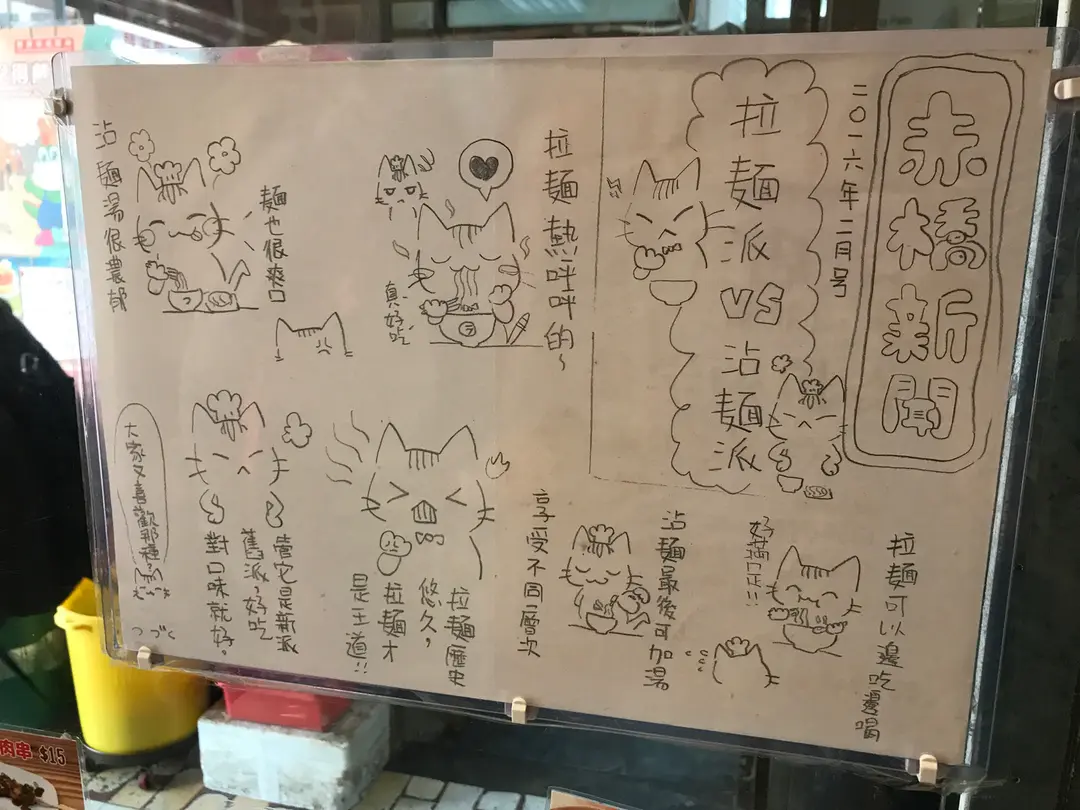 赤橋新聞
二〇一六年二月号
拉麵派VS沾麵派
拉麵熱呼呼的~
真好吃
麵也很爽口
沾麵湯很濃郁
拉麵可以邊吃邊喝
好滿足!!
沾麵最後可加湯
享受不同層次
拉麵歷史
悠久,
拉麵才
是王道!!
管它是新派
舊派,好吃
對口味就好。
大家又喜歡那種
つづく
肉串 $15